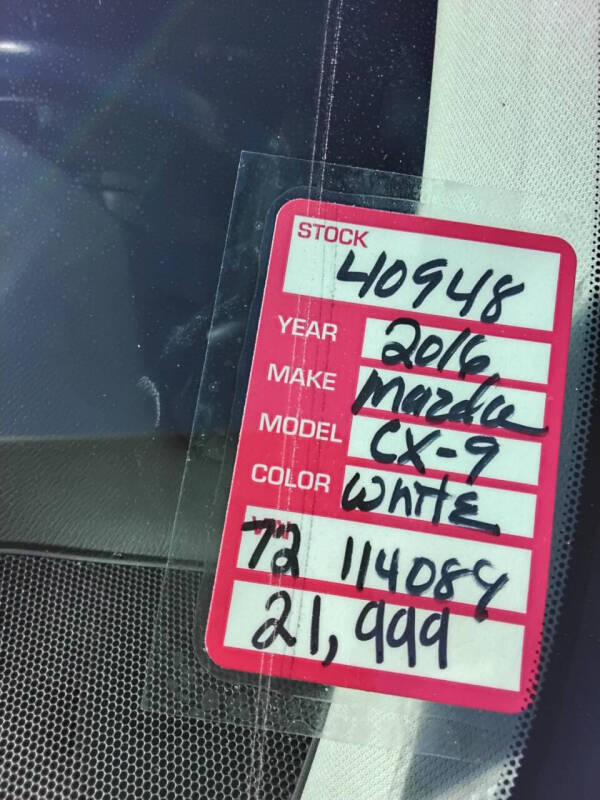 STOCK
40948
YEAR 2016
MAKE Mazda
MODEL CX-9
COLOR White
72 114089
21,999